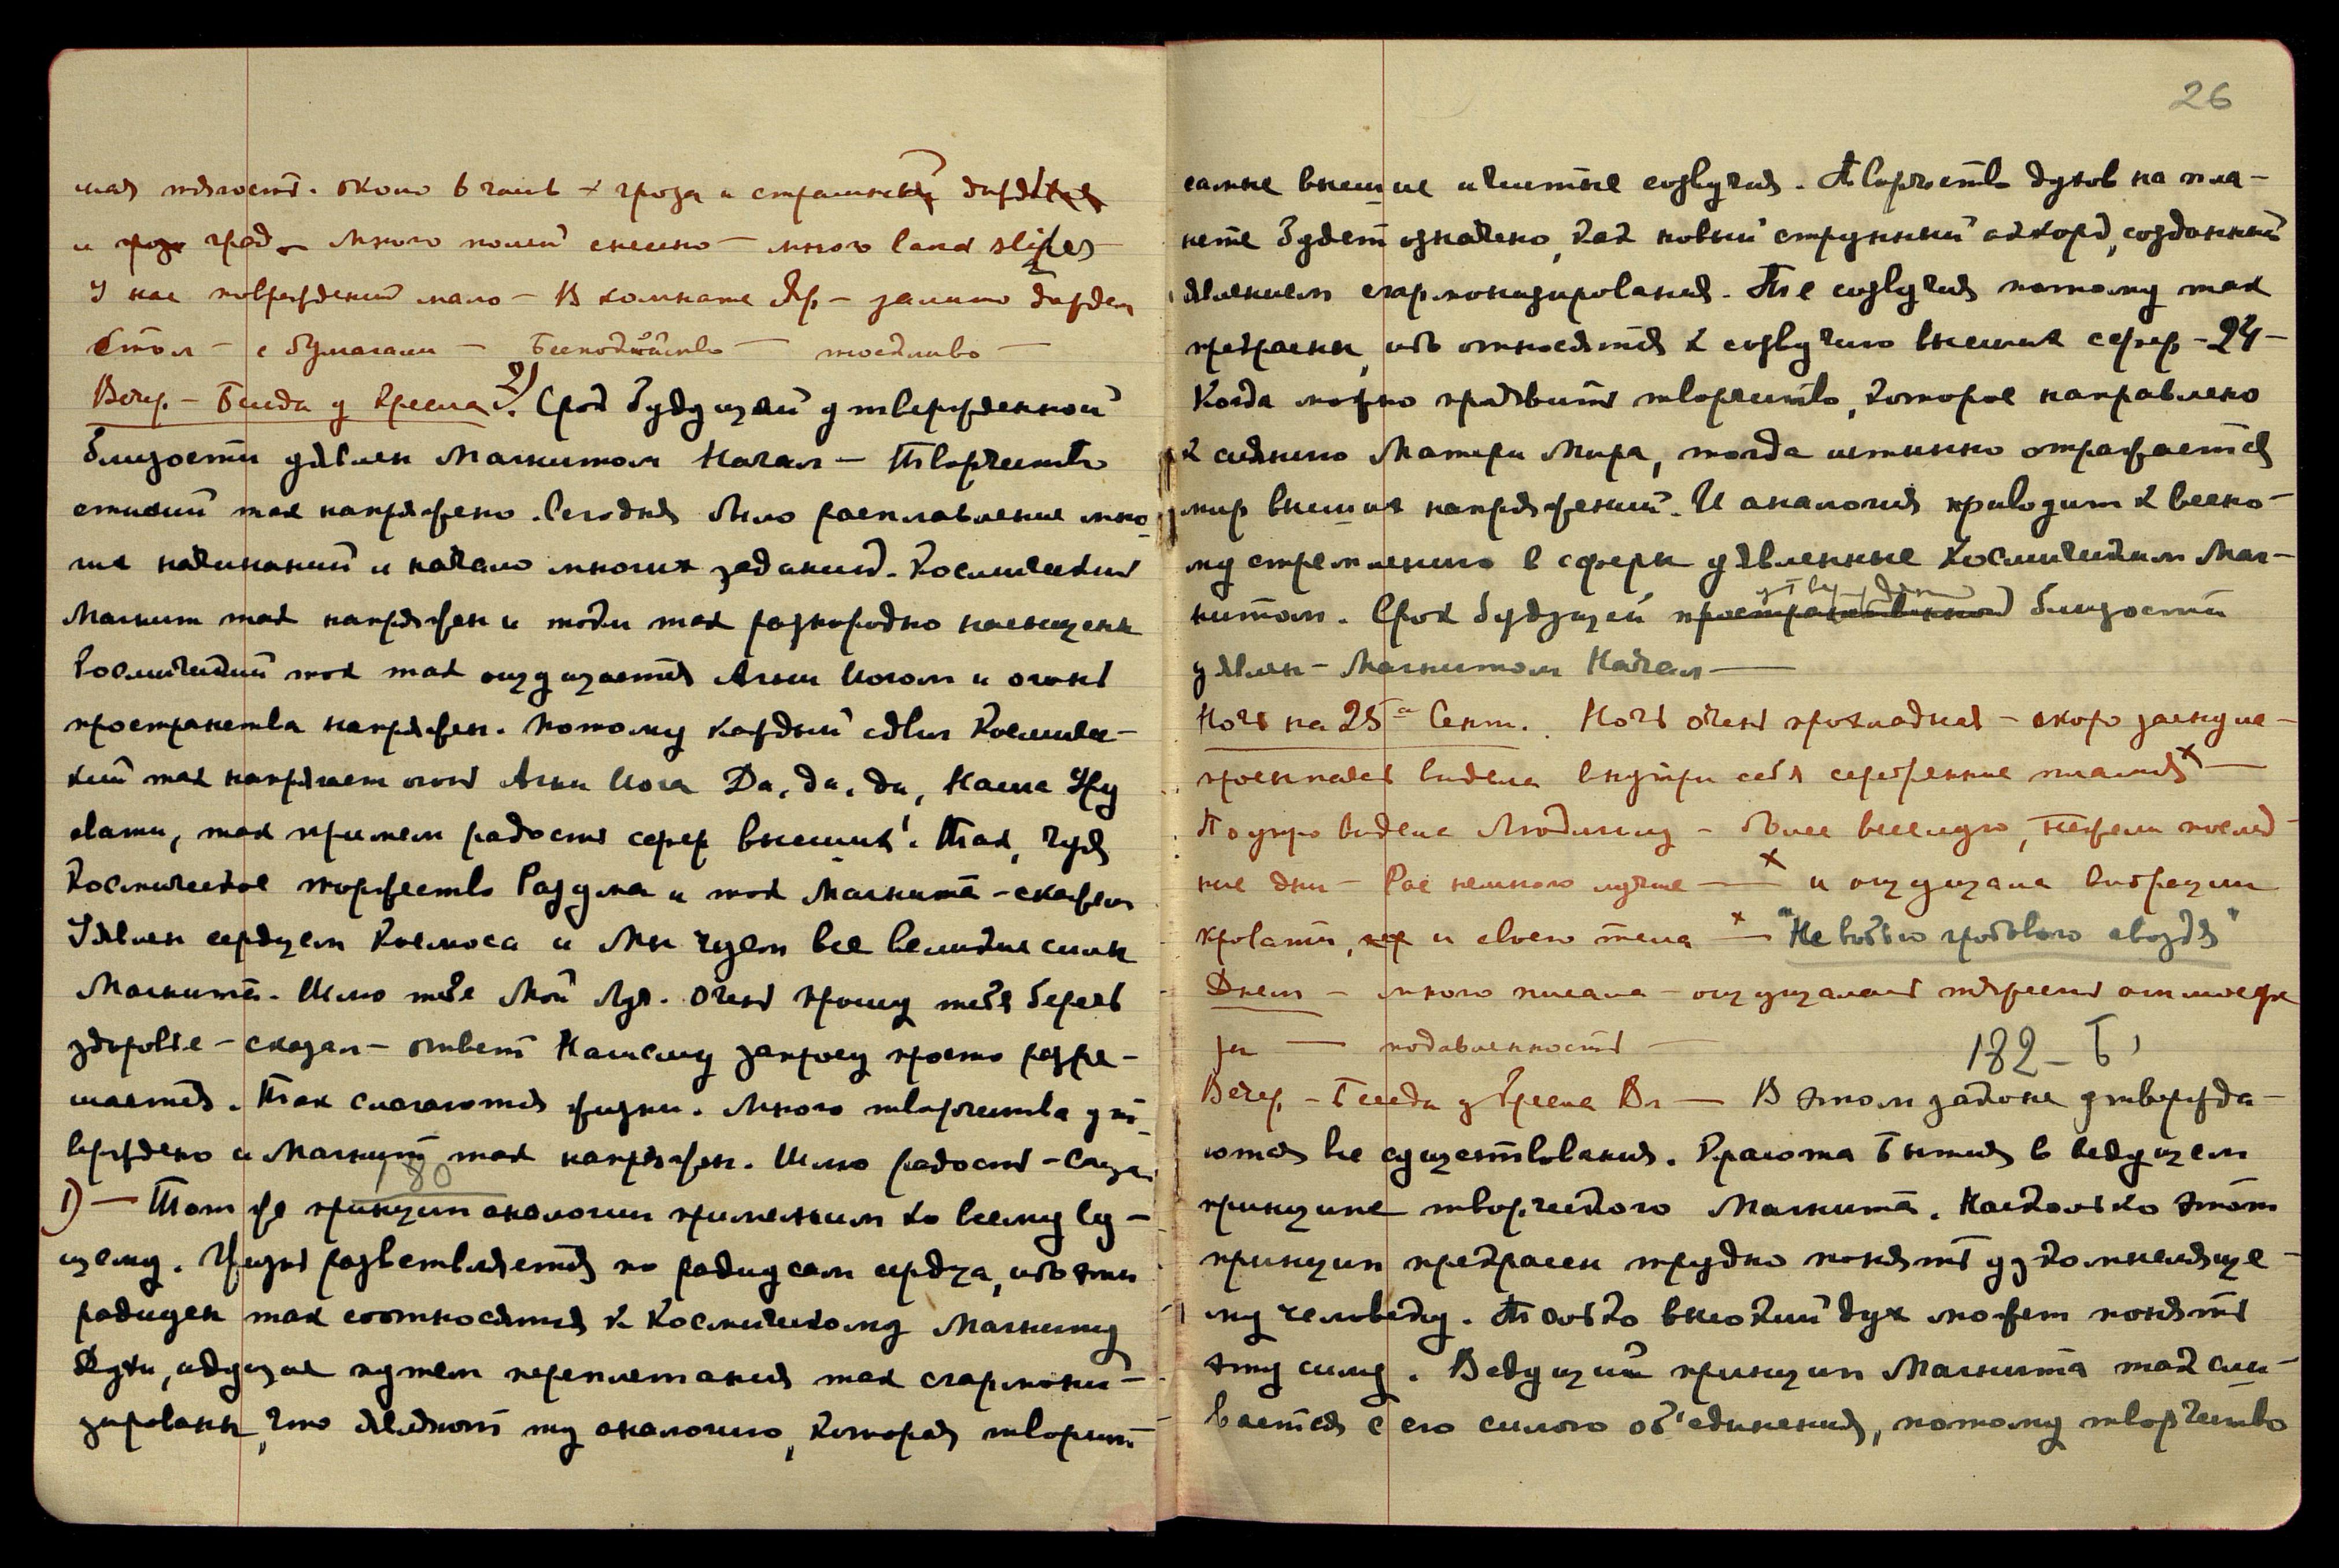 шая тягость. около 6 часов + гроза и страшный дождь
и град – много полей снесено – много land slides
У нас повреждений мало – В комнате Яр. – залило дождем
стол – с бумагами – Беспокойство – тоскливо –
Вечер. – Беседа у кресла. 2) Срок будущей утвержденной
близости уявлен Магнитом Начал – Творчество
стихий так напряжено. Сегодня было расплавление мно-
гих начинаний и начало многих заданий. Космический
Магнит так напряжен и токи так разнородно насыщены
Космический ток так ощущается Агни Йогом и огонь
пространства напряжен. Потому каждый сдвиг Космичес-
кий так напрягает огонь Агни Йога Да, да, да, Наша Уру
свати, так примем радость сфер высших! Так, чуя
Космическое торжество Разума и ток Магнита – скажем
Уявлен сердцем Космоса и Мы чуем все великие силы
Магнита. Шлю тебе Мой Луч. Очень прошу тебя беречь
здоровье – сказал – ответ Нашему запросу просто разре-
шается. Так слагаются жизни. Много творчества ут-
верждено и Магнит так напряжен. Шлю радость – Сказал
180
1) – Тот же принцип аналогии применим ко всему су-
щему. Жизнь разветвляется по радиусам сердца, ибо эти
радиусы так соотносятся к Космическому Магниту
Духи, идущие путем переплетания так сгармони-
зированы, что являют ту аналогию, которая творит
26
самые высшие и чистые созвучия. Творчество духов на пла-
нете будет означено, как новый струнный аккорд, созданный
явлением сгармонизирования. Те созвучия потому так
прекрасны, ибо относятся к созвучию высших сфер – 24 –
Когда можно проявить творчество, которое направлено
к сиянию Матери Мира, тогда истинно отражается
мир высших напряжений. И аналогия приводит к всяко-
му стремлению в сферы уявленные Космическим Маг-
утвержден
нитом. Срок будущей пространственной близости
уявлен – Магнитом Начал –
Ночь на 25ое Сент. Ночь очень прохладная – скоро заснула –
просыпаясь видела внутри себя серебренные пламя x –
Под утро видела Людмилу – более веселую, нежели послед-
ние дни – Рае немного лучше – x и ощущала вибрации
кровати, и своего тела x – "Не вобью гробового гвоздя"
Днем – много писала – ощущалась тяжесть атмосфе
ры – подавленность – 182 – Б 1
Вечер. – Беседа у Кресла Вл – В этом законе утвержда-
ются все существования. Красота Бытия в ведущем
принципе творческого Магнита. Насколько этот
принцип прекрасен трудно понять узкомысляще-
му человеку. Только высокий дух может понять
эту силу. Ведущий принцип Магнита так сли-
вается с его силою об'единения, потому творчество